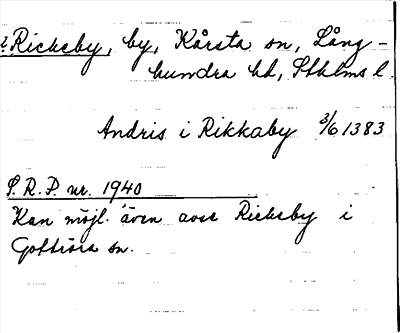 ? Rickeby, by, Kårsta sn, Lång-
hundra hd, Sthlms l.
Andris i Rikkaby 3/6 1383
S.R.P. nr. 1940
Kan möjl. även avse Rickeby i
Gottröra sn.